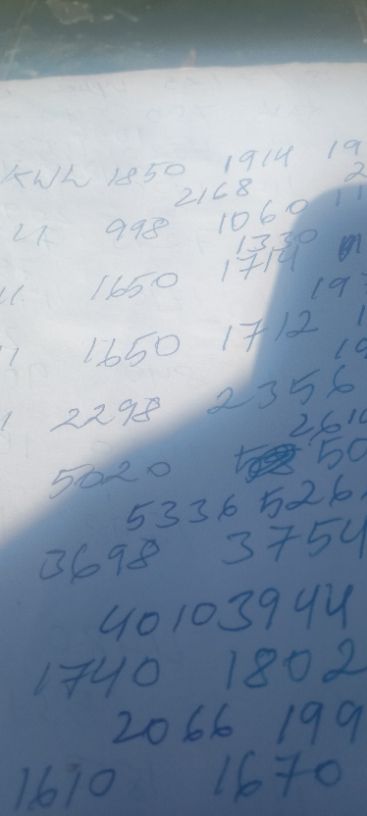 KWL 1850 1914 19
2168 2
4 998 1060 11
1330
11 1650 1714
197
11 1650 1712 1
19
1 2298 2356
2614
5020 50
5336 526
3698 3754
4010 3944
1740 1802
2066 199
1610 1670